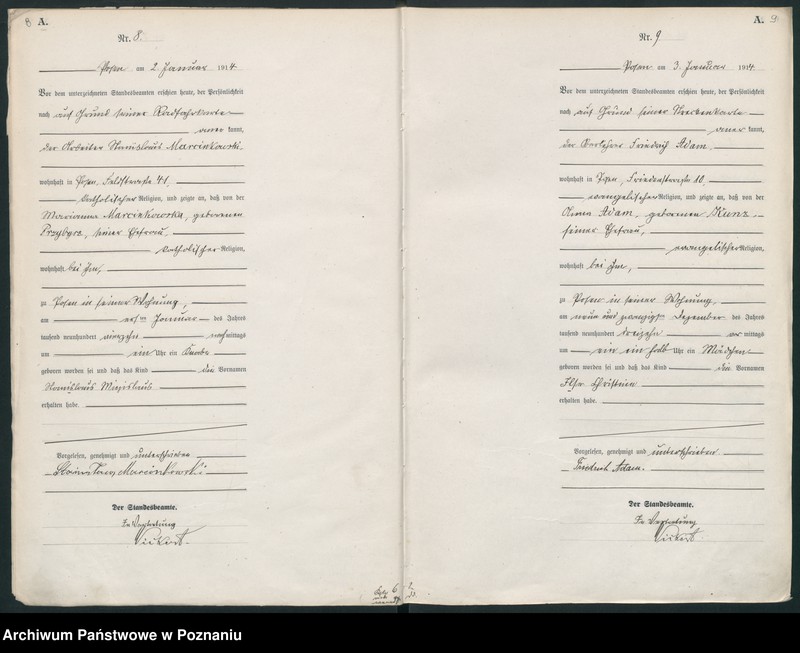 8 A.
Nr. 8.
Posen am 2. Januar 1914.
Vor dem unterzeichneten Standesbeamten erschien heute, der Persönlichkeit
nach auf Grund seiner Radfahrkarte
aner kannt,
der Arbeiter Stanislaus Marcinkowski
wohnhaft in Posen, Feldstraße 41,
katholischer Religion, und zeigte an, daß von der
Marianna Marcinkowska, geborenen
seiner Ehefrau,
katholischer Religion,
wohnhaft bei ihm,
zu Posen in seiner Wohnung,
am ersten Januar des Jahres
tausend neunhundert vierzehn nachmittags
um ein Uhr ein Knabe
geboren worden sei und daß das Kind den Vornamen
Stanislaus
erhalten habe.
Vorgelesen, genehmigt und unterschrieben
Stanisław Marcinkowski
Der Standesbeamte.
In Vertretung
A. 9
Nr. 9
Posen am 3. Januar 1914
Vor dem unterzeichneten Standesbeamten erschien heute, der Persönlichkeit
nach auf Grund seiner Streckenkarte
aner kannt,
der Oberlehrer Friedrich Adam,
wohnhaft in Posen, Friedenstraße 10,
evangelischer Religion, und zeigte an, daß von der
Adam, geborenen Kunz,
seiner Ehefrau,
evangelischer Religion,
wohnhaft bei ihm,
zu Posen in seiner Wohnung,
am neun und zwanzigsten Dezember des Jahres
tausend neunhundert dreizehn vor mittags
um ein einhalb Uhr ein Mädchen
geboren worden sei und daß das Kind den Vornamen
Ilse Christine
erhalten habe.
Vorgelesen, genehmigt und unterschrieben
Friedrich Adam.
Der Standesbeamte.
In Vertretung
Archiwum Państwowe w Poznaniu